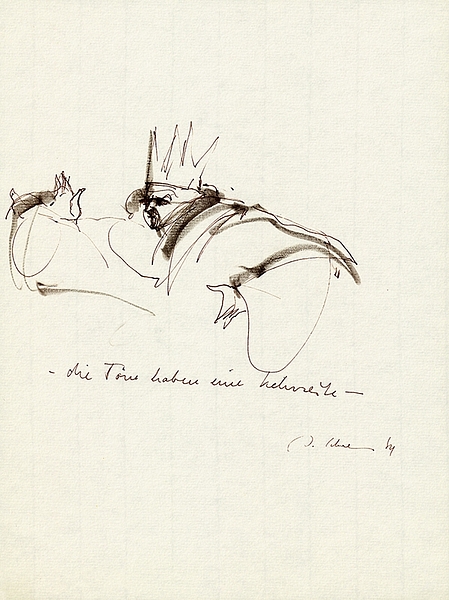 – die Töne haben eine Kehrseite –